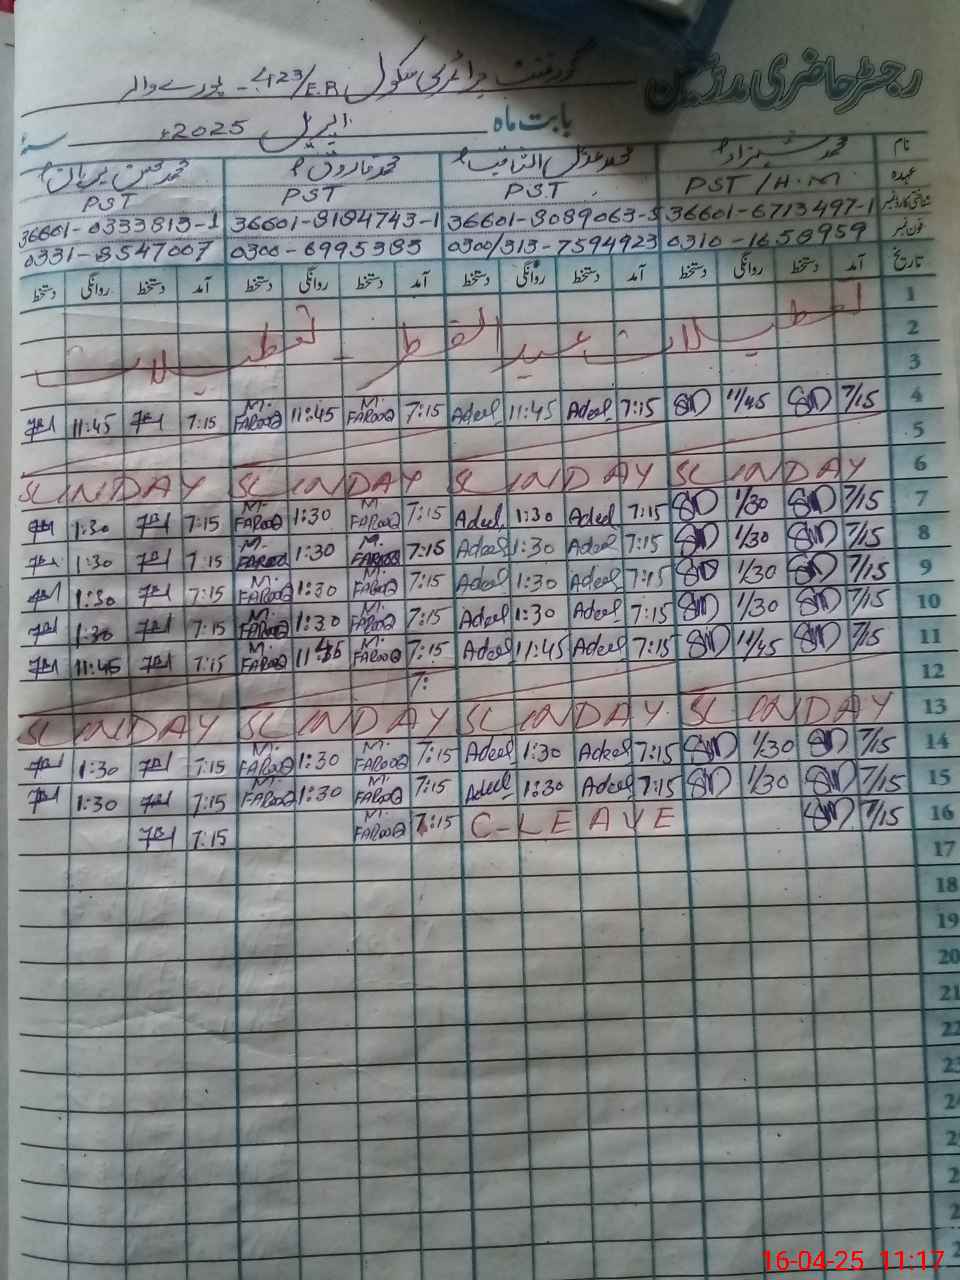 رجسٹر حاضری مدرسین گورنمنٹ پرائمری سکول 423/E.B - بورے والا
بابت ماہ اپریل 2025ء سنہ
نام محمد شہزاد محمد عدیل الثاقب محمد فاروق محمد محسن
عہدہ PST/H.M PST PST PST
شناختی کارڈ نمبر 36601-6713497-1 36601-8089063-5 36601-8184743-1 36601-0333813-1
فون نمبر 0310-1658959 0300/313-7594923 0300-6995385 0331-8547007
تاریخ آمد دستخط روانگی دستخط آمد دستخط روانگی دستخط آمد دستخط روانگی دستخط آمد دستخط روانگی دستخط
1
2 تعطیلات عید الفطر - تعطیلات
3
4 7/15 11/45 7:15 Adeel 11:45 Adeel 7:15 M. FAROOQ 11:45 M. FAROOQ 7:15 11:45
5
6 SUNDAY SUNDAY SUNDAY SUNDAY
7 7/15 1/30 7:15 Adeel 1:30 Adeel 7:15 M. FAROOQ 1:30 M. FAROOQ 7:15 1:30
8 7/15 1/30 7:15 Adeel 1:30 Adeel 7:15 M. FAROOQ 1:30 M. FAROOQ 7:15 1:30
9 7/15 1/30 7:15 Adeel 1:30 Adeel 7:15 M. FAROOQ 1:30 M. FAROOQ 7:15 1:30
10 7/15 1/30 7:15 Adeel 1:30 Adeel 7:15 M. FAROOQ 1:30 M. FAROOQ 7:15 1:30
11 7/15 11/45 7:15 Adeel 11:45 Adeel 7:15 M. FAROOQ 11:45 M. FAROOQ 7:15 11:45
12 7:
13 SUNDAY SUNDAY SUNDAY SUNDAY
14 7/15 1/30 7:15 Adeel 1:30 Adeel 7:15 M. FAROOQ 1:30 M. FAROOQ 7:15 1:30
15 7/15 1/30 7:15 Adeel 1:30 Adeel 7:15 M. FAROOQ 1:30 M. FAROOQ 7:15 1:30
16 7/15 C-LEAVE 7:15 M. FAROOQ 7:15
17
18
19
20
21
22
23
16-04-25 11:17